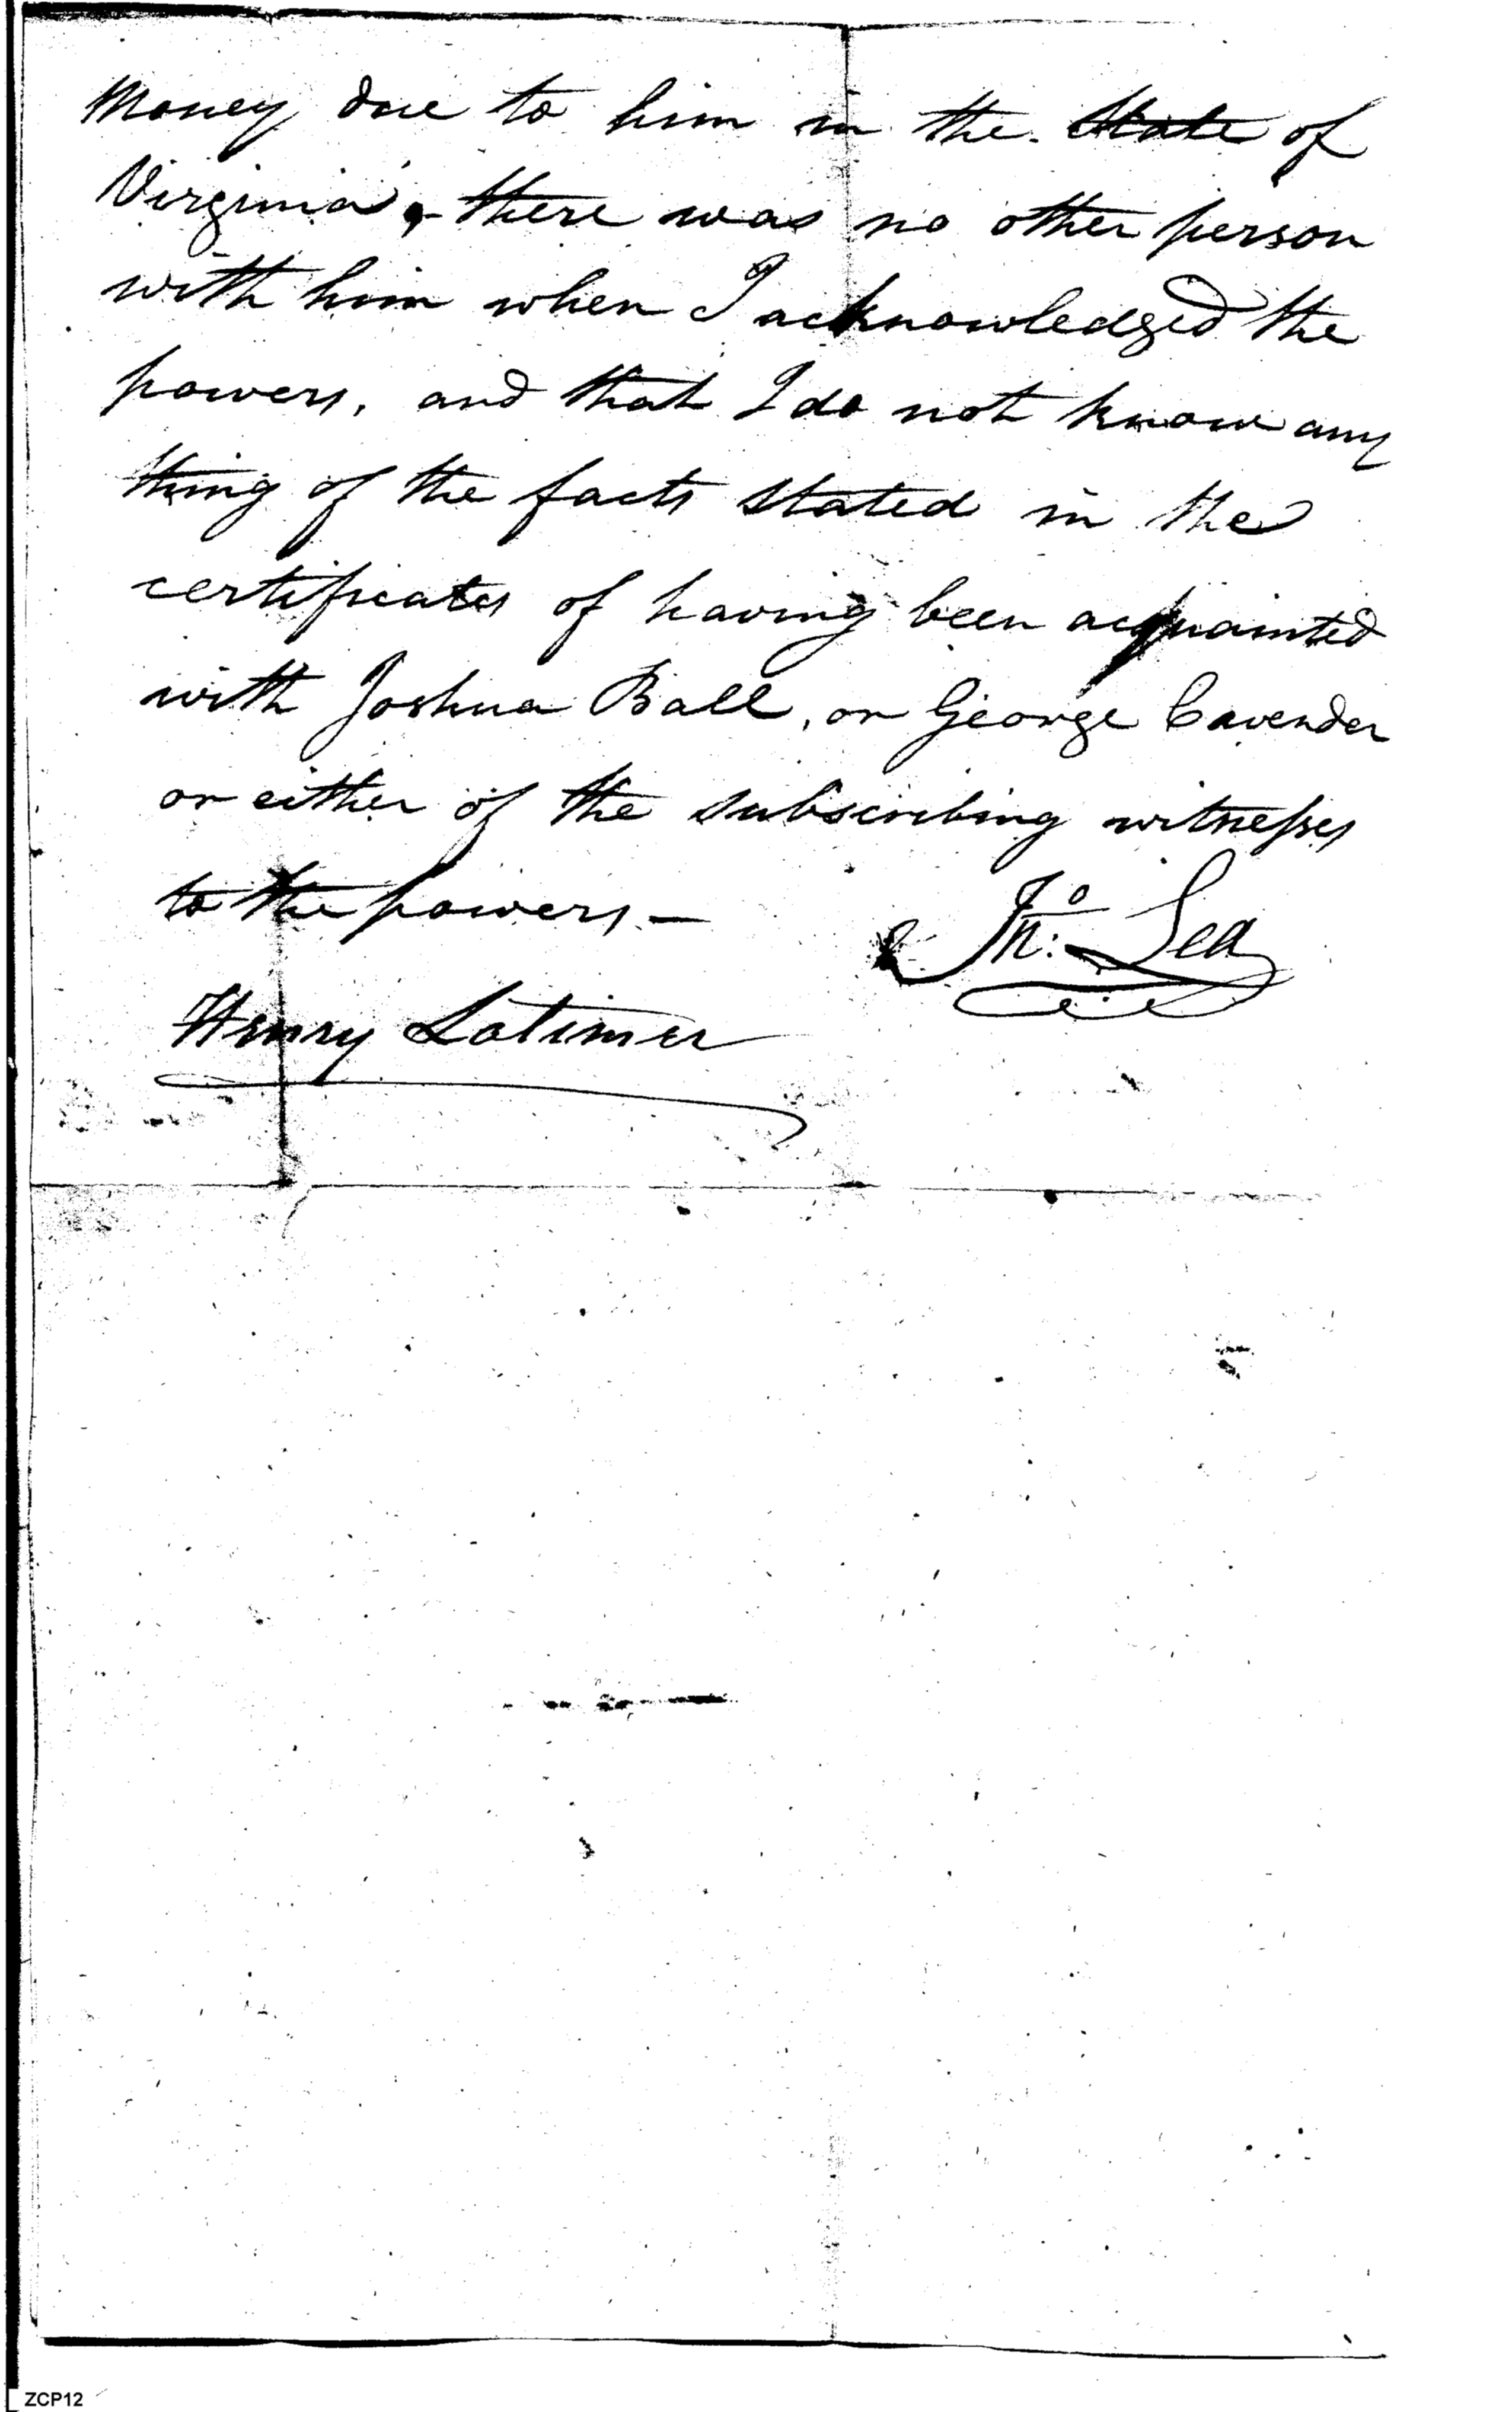 Money due to him in the State of
Virginia, there was no other person
with him when I acknowledged the
powers, and that I do not know any
thing of the facts stated in the
certificates of having been acquainted
with Joshua Ball, or George Cavender
or either of the subscribing witnesses
to the powers —
Jno: Lea
Henry Latimer
ZCP12